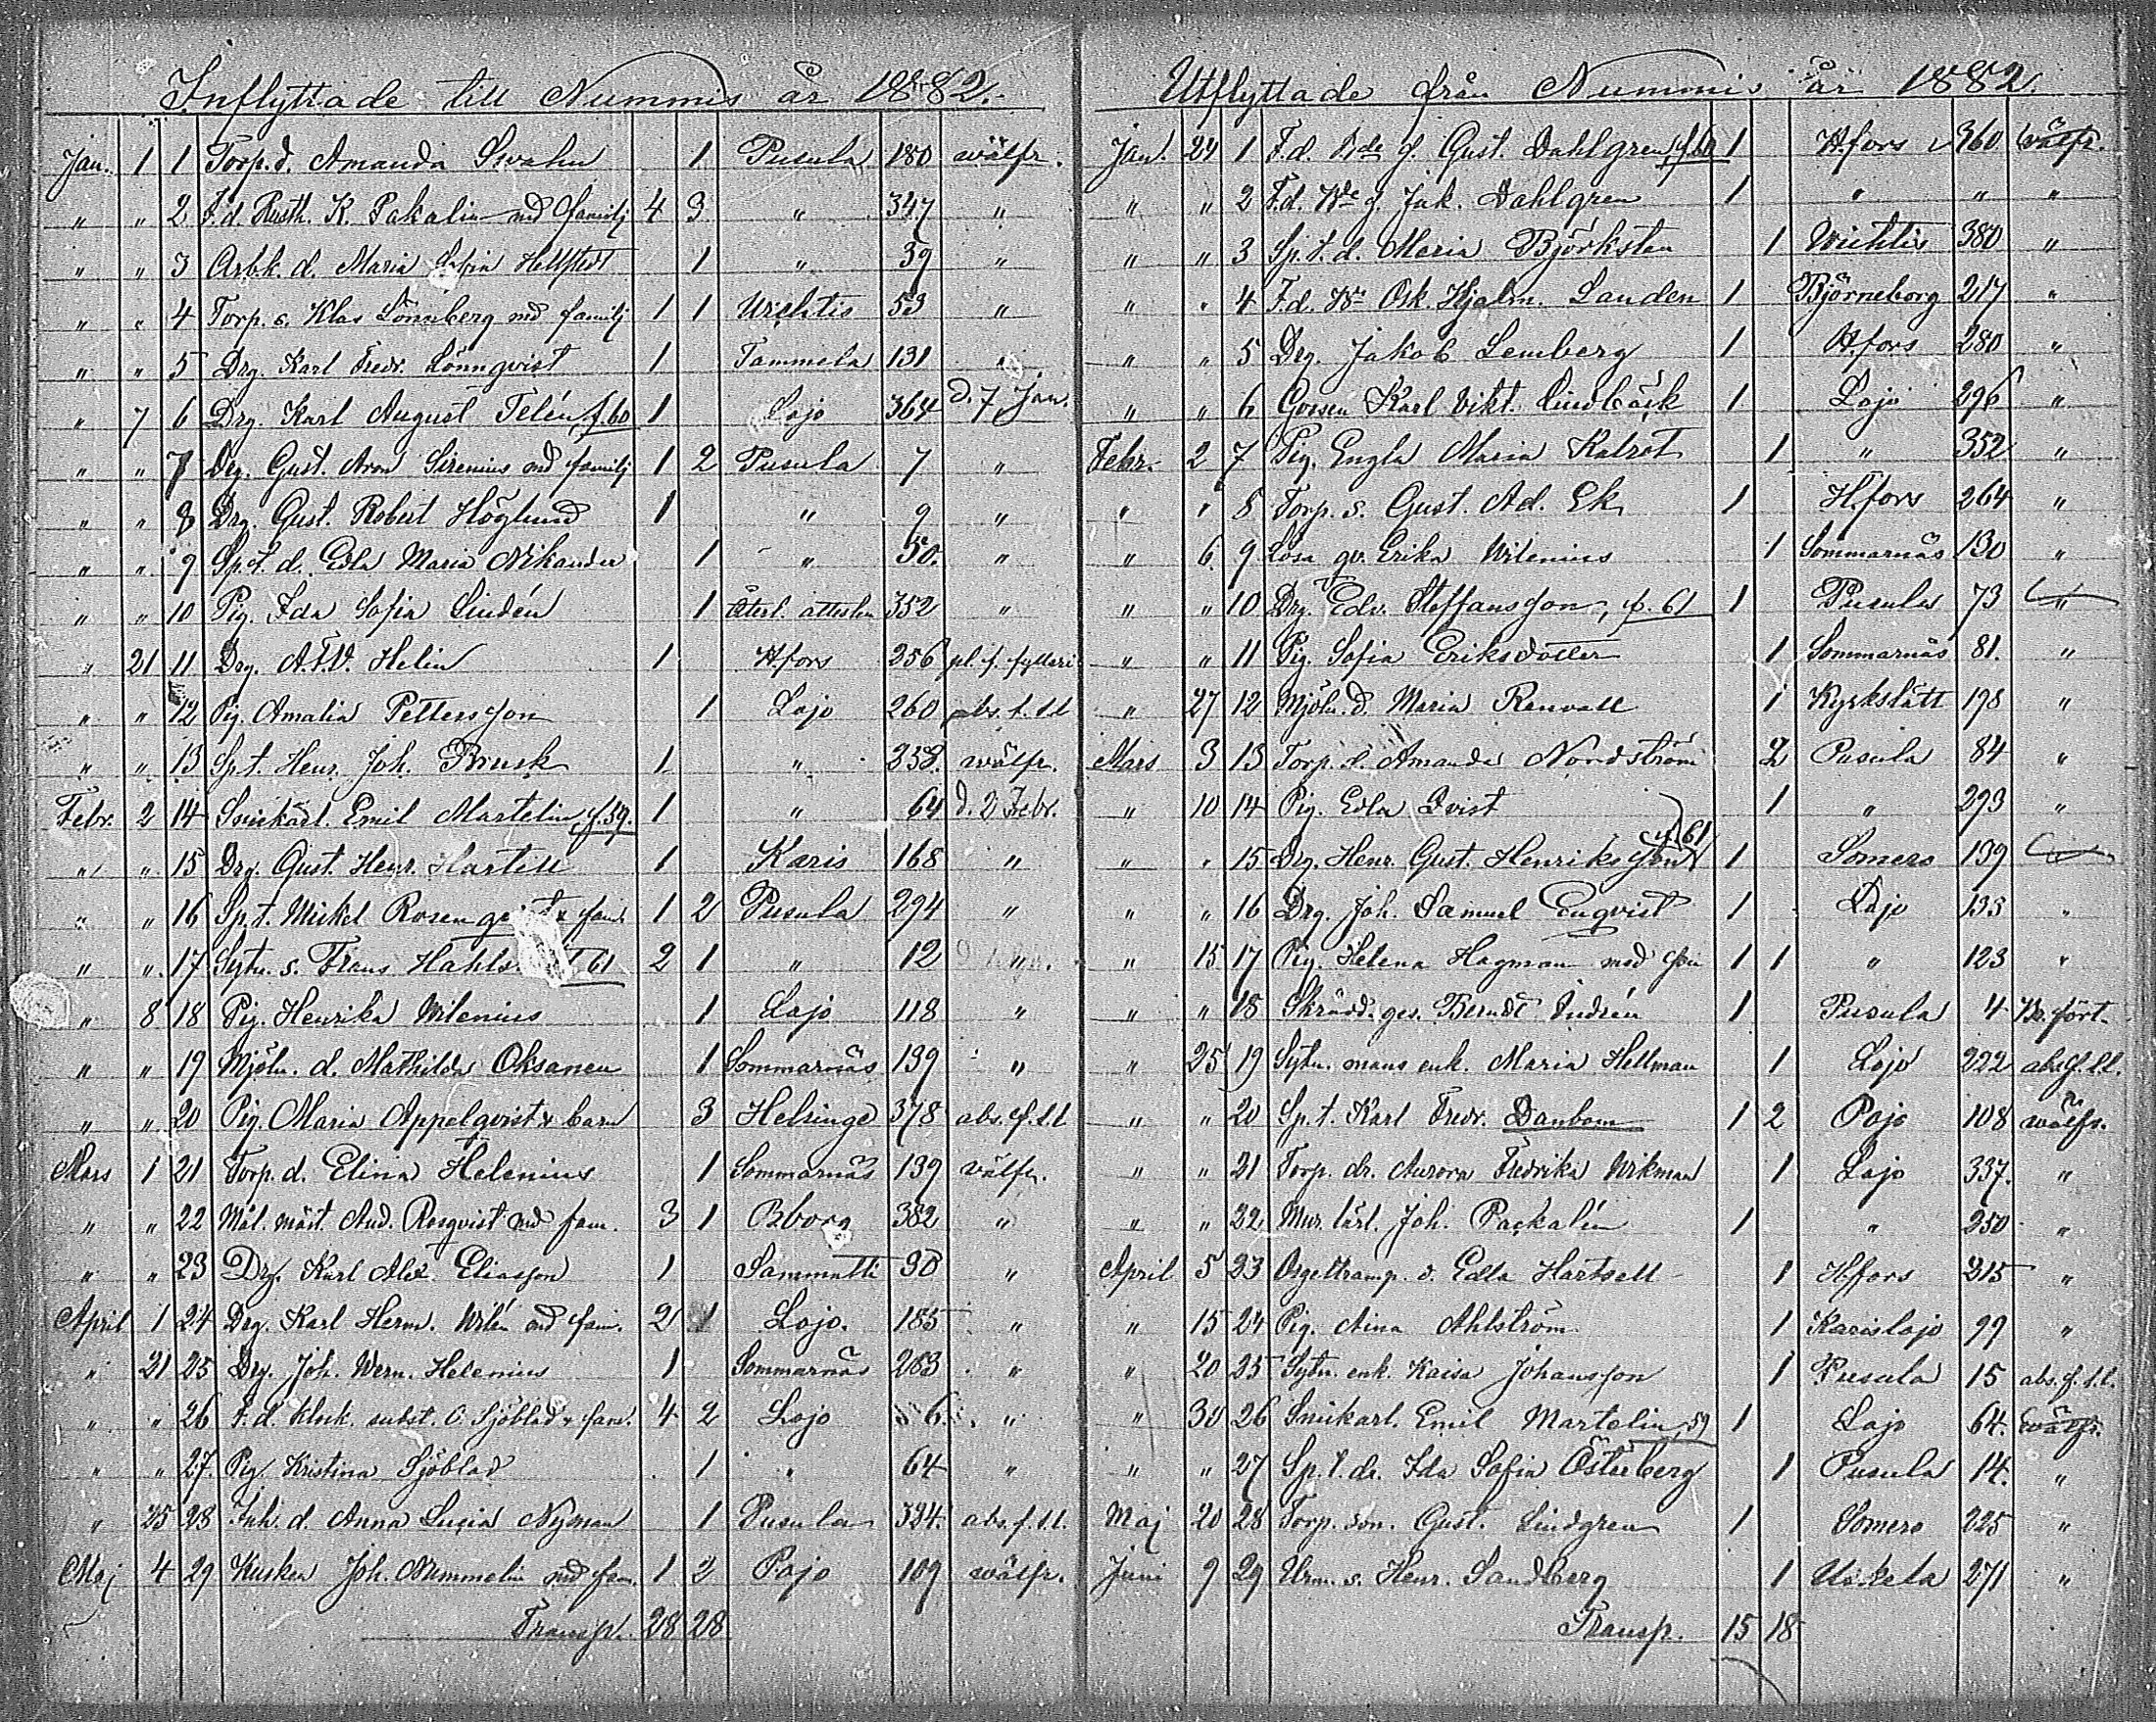 Inflyttade till Nummis år 1882.
Jan. 1 1 Torp. d. Amanda Svahn 1 Pusula 180 wälfr.
" " 2 F. d. Rusth. K. Pakalin md familj 4 3 " 347 "
" " 3 Arbk. d. Maria Sofia Hellstedt 1 " 39 "
" " 4 Torp. s. Klas Lönnberg md familj 1 1 Wichtis 53 "
" " 5 Drg. Karl Fredr. Lönnqvist 1 Tammela 131 "
" 7 6 Drg. Karl August Telén f. 60 1 Lojo 364 d. 7 Jan.
" " 7 Drg. Gust. Aron Sirenius md familj 1 2 Pusula 7 "
" " 8 Drg. Gust. Robert Höglund 1 " 9 "
" " 9 Sp. t. d. Edla Maria Nikander 1 " 50. "
" " 10 Pig. Ida Sofia Lindén 1 Återl. attesten 352 "
" 21 11 Drg. A. F. W. Helin 1 Hfors 256 pl. f. fylleri
" " 12 Pig. Amalia Pettersson 1 Lojo 260 abs. f. l.l
" " 13 Sp. t. Henr. Joh. Brusk 1 " 258. wälfr.
Febr. 2 14 Smikarl. Emil Martelin f. 59. 1 " 64 d. 2 Febr.
" " 15 Drg. Gust. Henr. Hartell 1 Karis 168 "
" " 16 Sp. t. Mickel Rosenqvist & fam. 1 2 Pusula 294 "
" " 17 Sytn. s. Frans 61 2 1 " 12 "
" 8 18 Pig. Henrika Wilenius 1 Lojo 118 "
" " 19 Mjöln. d. Mathilda Oksanen 1 Sommarnäs 139 "
" " 20 Pig. Maria Appelqvist & barn 3 Helsinge 378 abs. f. l.l
Mars 1 21 Torp. d. Elina Helenius 1 Sommarnäs 139 välfr.
" " 22 Mål. mäst. And. Rosqvist md fam. 3 1 Bborg 382 "
" " 23 Drg. Karl Alex. Eliasson 1 Sammatti 30 "
April 1 24 Drg. Karl Herm. Wilén md fam. 2 1 Lojo. 185 "
" 21 25 Drg. Joh. Wern. Helenius 1 Sommarnäs 283 "
" " 26 F. d. Klock. subst. C. Sjöblad & fam. 4 2 Lojo 6 "
" " 27. Pig. Kristina Sjöblad 1 " 64 "
" 25 28 Inh. d. Anna Lucia Nyman 1 Pusula 324. abs. f. l.l.
Maj 4 29 Kusken Joh. Nummelin md fam. 1 2 Pojo 109 wälfr.
Transp. 28 28
Utflyttade från Nummis år 1882.
Jan. 24 1 F. d. Bde g. Gust. Dahlgren f. 60 1 Hfors 360 wälfr.
" " 2 F. d. Bde g. Jak. Dahlgren 1 " " "
" " 3 Sp. t. d. Maria Björksten 1 Wichtis 380 "
" " 4 F. d. Osk. Hjalm. Landen 1 Björneborg 217 "
" " 5 Drg. Jakob Lemberg 1 Hfors 280 "
" " 6 Gossen Karl Vikt. Lindbäck 1 Lojo 296 "
Febr. 2 7 Pig. Engla Maria Kalrot 1 " 352 "
" " 8 Torp. s. Gust. Ad. Ek 1 H.fors 264 "
" 6 9 Lösa qv. Erika Wilenius 1 Sommarnäs 130 "
" " 10 Drg. Edv. Steffansson, f. 61 1 Pusula 73 "
" " 11 Pig. Sofia Eriksdotter 1 Sommarnäs 81. "
" 27 12 Mjöln. d. Maria Renvall 1 Kyrkslätt 198 "
Mars 3 13 Torp. d. Amanda Nordström 2 Pusula 84 "
" 10 14 Pig. Edla Qvist 1 " 293 "
" " 15 Drg. Henr. Gust. Henriksson f. 61 1 Somero 139 "
" " 16 Drg. Joh. Samuel Enqvist 1 Lojo 135 "
" 15 17 Pig. Helena Hagman med son 1 1 " 123 "
" " 18 Skrädd. ges. Berndt Indrén 1 Pusula 4 Be. fört.
" 25 19 Sytn. mans enk. Maria Hellman 1 Lojo 222 abs. f. l.l.
" " 20 Sp. t. Karl Fredr. Danbom 1 2 Pojo 108 wälfr.
" " 21 Torp. dr. Aurora Fredrika Wikman 1 Lojo 337. "
" " 22 Mur. lärl. Joh. Packalén 1 " 250 "
April 5 23 Orgeltramp. d. Edla Hartsell 1 Hfors 215 "
" 15 24 Pig. Aina Ahlström 1 Karislojo 99 "
" 20 25 Sytn. enk. Kaisa Johansson 1 Pusula 15 abs. f. l.l.
" 30 26 Smikarl. Emil Martelin, 59 1 Lojo 64. wälfr.
" " 27 Sp. t. dr. Ida Sofia Österberg 1 Pusula 14. "
Maj 20 28 Torp. son. Gust. Lindgren 1 Somero 225 "
Juni 9 29 Urm. s. Henr. Sandberg 1 Uskela 271 "
Transp. 15 18